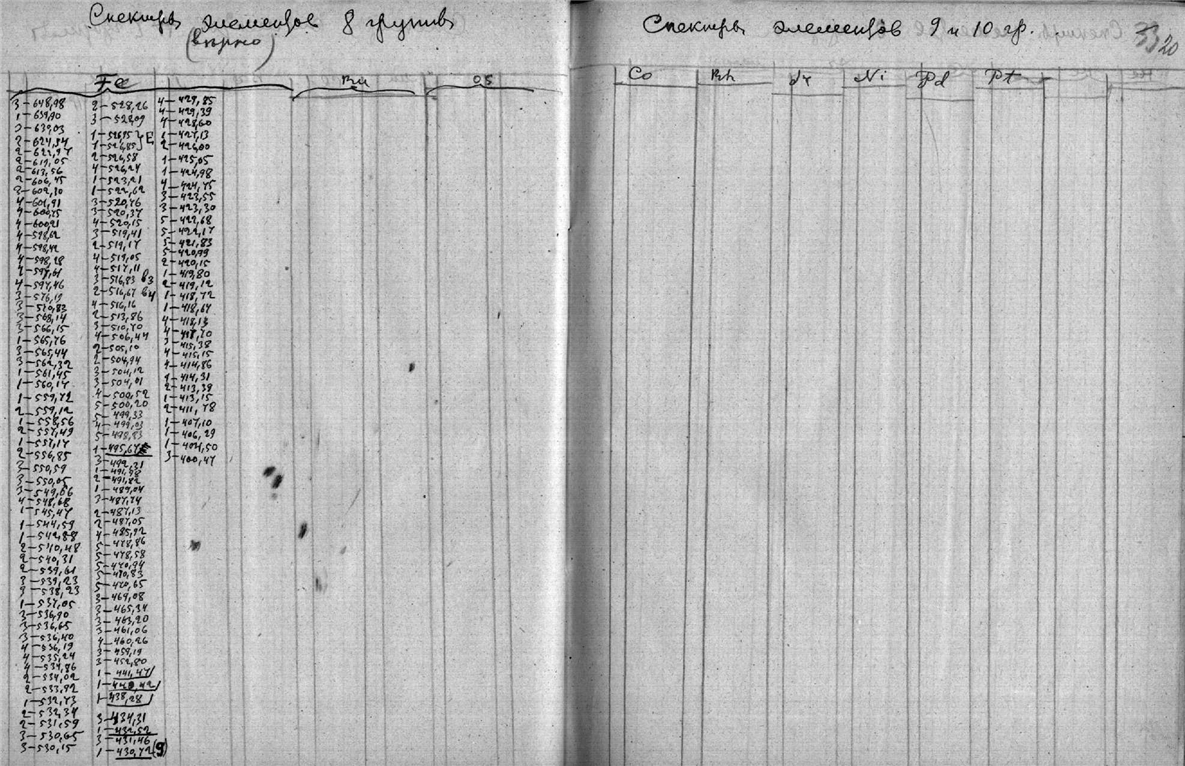 Спектры элементов 8 группы
(вѣрно)
Fe
Ru
Os
3 – 648,98
1 – 639,90
2 – 639,03
2 – 624,34
2 – 622,97
2 – 619,05
2 – 613,56
2 – 606,45
3 – 602,10
4 – 601,91
4 – 600,21
4 – 598,62
4 – 598,42
4 – 598,28
4 – 597,46
3 – 576,19
3 – 570,83
3 – 566,15
1 – 565,76
3 – 565,44
3 – 562,32
1 – 561,45
1 – 560,17
1 – 559,72
2 – 559,12
1 – 558,56
2 – 557,49
1 – 557,17
2 – 556,85
3 – 550,59
3 – 550,05
3 – 549,66
4 – 548,68
1 – 545,47
1 – 544,59
1 – 542,88
2 – 540,31
2 – 539,61
3 – 539,23
3 – 538,23
1 – 537,05
3 – 536,90
3 – 536,65
3 – 536,40
4 – 536,19
4 – 535,24
4 – 534,86
2 – 534,02
2 – 533,92
1 – 532,73
2 – 532,34
2 – 531,59
3 – 530,65
3 – 530,15
2 – 528,26
3 – 528,09
1 – 526,95 } E
1 – 526,85
2 – 526,58
4 – 526,24
1 – 523,21
1 – 522,62
3 – 520,76
3 – 520,37
4 – 520,15
3 – 519,41
2 – 519,17
4 – 519,05
4 – 517,11
3 – 516,83 b3
2 – 516,67 b4
4 – 516,16
2 – 513,86
3 – 510,70
4 – 506,44
2 – 505,10
2 – 504,94
3 – 504,12
3 – 504,01
4 – 500,52
5 – 500,20
5 – 499,33
4 – 499,03
5 – 498,83
3 – 492,31
1 – 491,98
2 – 491,82
1 – 489,04
3 – 487,74
2 – 487,13
2 – 487,05
4 – 485,92
5 – 478,86
5 – 478,58
5 – 470,94
5 – 470,83
5 – 470,65
3 – 469,08
3 – 465,34
3 – 463,20
3 – 461,06
4 – 460,26
3 – 459,19
3 – 452,80
1 – 441,47
1 – 440,42
1 – 438,28
3 – 434,31
1 – 432,52
3 – 431,46
1 – 430,72 (g)
4 – 429,85
4 – 429,39
4 – 428,60
1 – 427,13
2 – 426,00
1 – 425,05
1 – 424,98
4 – 424,75
3 – 423,55
3 – 423,30
5 – 422,68
5 – 422,17
3 – 421,83
5 – 420,79
2 – 420,15
1 – 419,80
2 – 419,12
1 – 418,72
1 – 418,67
4 – 418,13
3 – 415,38
4 – 415,15
4 – 414,86
1 – 414,31
2 – 413,39
1 – 413,15
2 – 411,78
1 – 407,10
1 – 406,29
1 – 404,50
3 – 400,47
Спектры элементов 9 и 10 гр.
33
20
Co
Rh
Ir
Ni
Pd
Pt